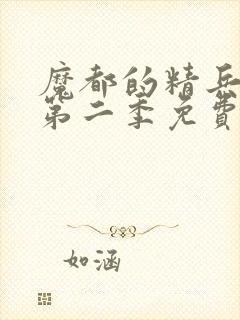 魔都的精兵
第二季免費
如涵